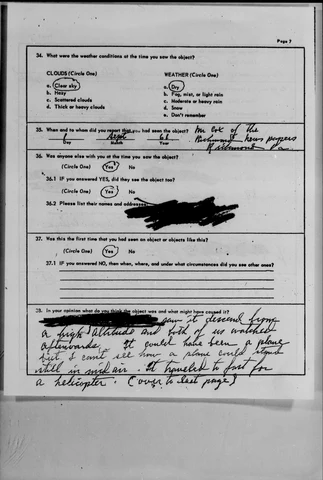 Page 7
34. What were the weather conditions at the time you saw the object?
CLOUDS (Circle One) WEATHER (Circle One)
a. Clear sky a. Dry
b. Hazy b. Fog, mist, or light rain
c. Scattered clouds c. Moderate or heavy rain
d. Thick or heavy clouds d. Snow
e. Don't remember
35. When and to whom did you report that you had seen the object?
one of the
Richmond news papers
Richmond
Day Month Year
36. Was anyone else with you at the time you saw the object?
(Circle One) Yes No
36.1 IF you answered YES, did they see the object too?
(Circle One) Yes No
36.2 Please list their names and addresses:
37. Was this the first time that you had seen an object or objects like this?
(Circle One) Yes No
37.1 IF you answered NO, then when, where, and under what circumstances did you see other ones?
38. In your opinion what do you think the object was and what might have caused it?
saw it descend from
a high altitude and both of us watched
afterwards. It could have been a plane
but I can't see how a plane could stand
still in mid air. It traveled to fast for
a helicopter. (over to last page)